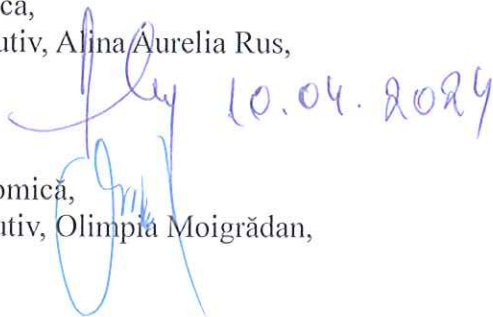 ca,
utiv, Alina Aurelia Rus,
10.04.2024
omică,
utiv, Olimpia Moigrădan,